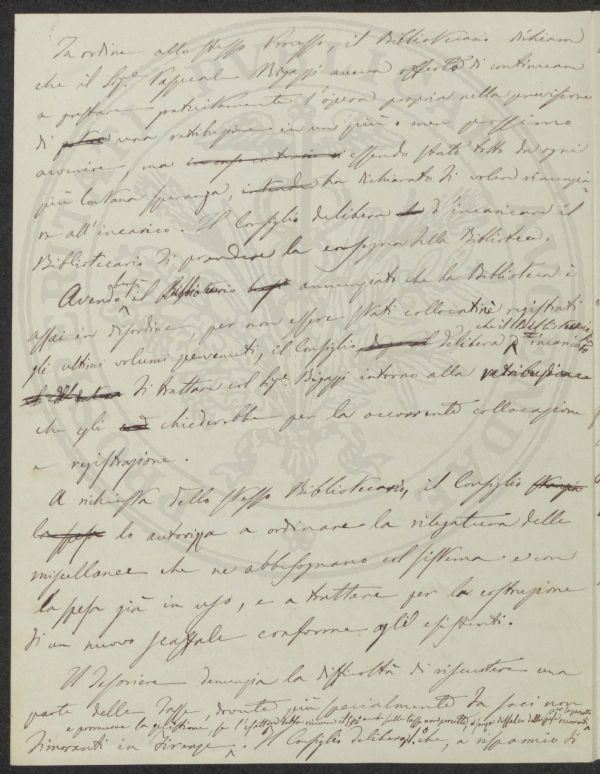 In ordine allo stesso Processo, il Bibliotecario dichiara
che il Sig.r Pasquale Bigazzi aveva offerto di continuare
a prestare gratuitamente l'opera propria nella previsione
di una retribuzione in un più o men prossimo
avvenire, ma essendo stato tolto da ogni
più lontana speranza, intende ha dichiarato di voler rinunzia-
re all'incarico. Il Consiglio delibera d'incaricare il
Bibliotecario di prendere la consegna della Biblioteca.
Avendo il Bibliotecario annunziato che la Biblioteca è
assai in disordine, per non essere stati collocati nè registrati
gli ultimi volumi pervenuti, il Consiglio delibera che il Bibliotecario sia incaricato
di trattare col Sig.r Bigazzi intorno alla retribuzione
che egli chiederebbe per la occorrente collocazione
e registrazione.
A richiesta dello stesso Bibliotecario, il Consiglio
la spesa lo autorizza a ordinare la rilegatura delle
miscellanee che ne abbisognano col sistema e con
la spesa già in uso, e a trattare per la costruzione
di un nuovo scaffale conforme agli esistenti.
Il Tesoriere denunzia la difficoltà di riscuotere una
parte delle Tasse dovute più specialmente da soci non
e promuove la quistione, se l'esattore
dimoranti in Firenze. Il Consiglio delibera che, a risparmio di